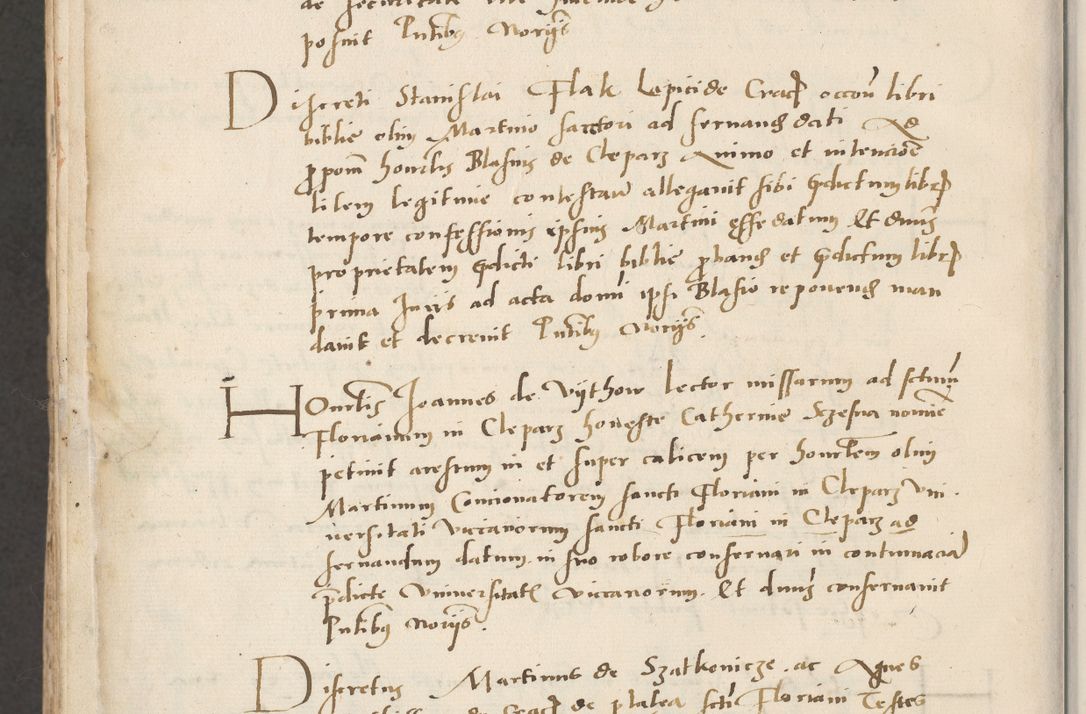 posuit Pntibus Norijs
Discreti Stanislai Flak Lapicide Crac occoe libri
biblie olim Martino factori ad servand dati Ad
ppom honorlis Blasius de Cleparz Animo et intencioe
litem legitime contestare allegavit sibi pdictum libr
tempore confessionis ipsius Martini esse datum Et dnus
proprietatem pdicti libri biblie proband et pdictum libr
prima Juris ad acta domi ipsi Blasio reponend man
davit et decrevit Pntibus Norijs.
Honorlis Joannes de Vythow lector missarum ad sctum
Florianum in Cleparz honeste Catherine Sczesna nomine
petivit arestum in et super calicem per honorlem olim
Martinum Concionatorem sancti Floriani in Cleparz Vni
versitati vicariorum sancti Floriani in Cleparz ad
servandum datum in suo robore conservari in contumacia
pdicte Vniversitatis Viccariorum. Et dnus conservavit
Pntibus Norijs.
Discretus Martinus de Szalkowicze ac Agnes
de Crac de platea scti Floriani Testes